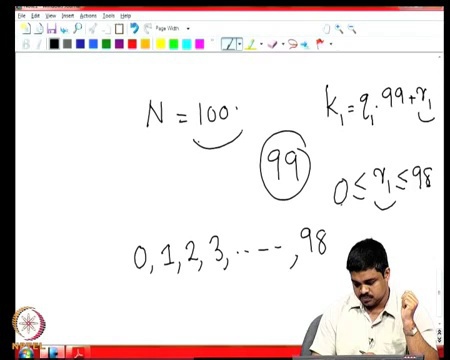 File Edit View Insert Actions Tools Help
Page Width
N = 100.
k₁ = q₁.99 + r₁
99
0 ≤ r₁ ≤ 98
0, 1, 2, 3, ..---, 98